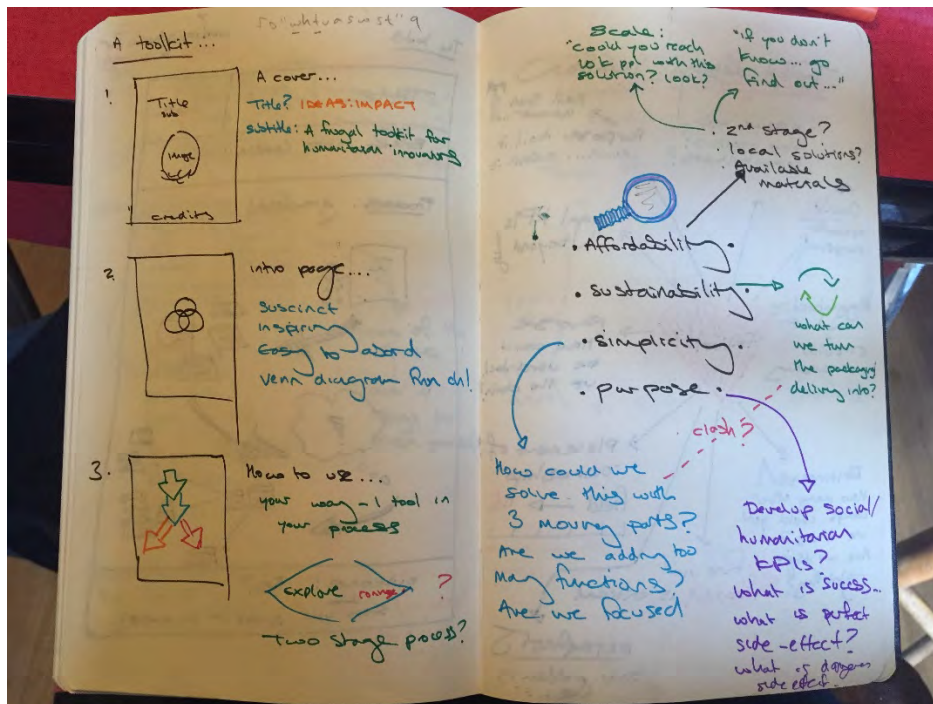 A toolkit...
1
Title
sub
image
credits
A cover...
Title? IDEAS:IMPACT
subtitle: A frugal toolkit for
humanitarian innovators
2.
intro page...
suscinct
inspiring
Easy to
venn diagram from ch1
3.
How to use...
your way - 1 tool in
your process
explore
?
Two stage process?
Scale:
"could you reach
10k ppl with this
solution? 100k?
"If you don't
know... go
find out..."
. 2nd stage?
. local solutions?
. Available
materials
. Affordability.
. sustainability.
. simplicity.
. purpose.
what can
we turn
the packaging
delivery into?
clash?
How could we
solve this with
3 moving parts?
Are we adding too
many functions?
Are we focused
Develop social/
humanitarian
KPIs?
what is sucess...
what is perfect
side-effect?
what is dangerous
side effect...